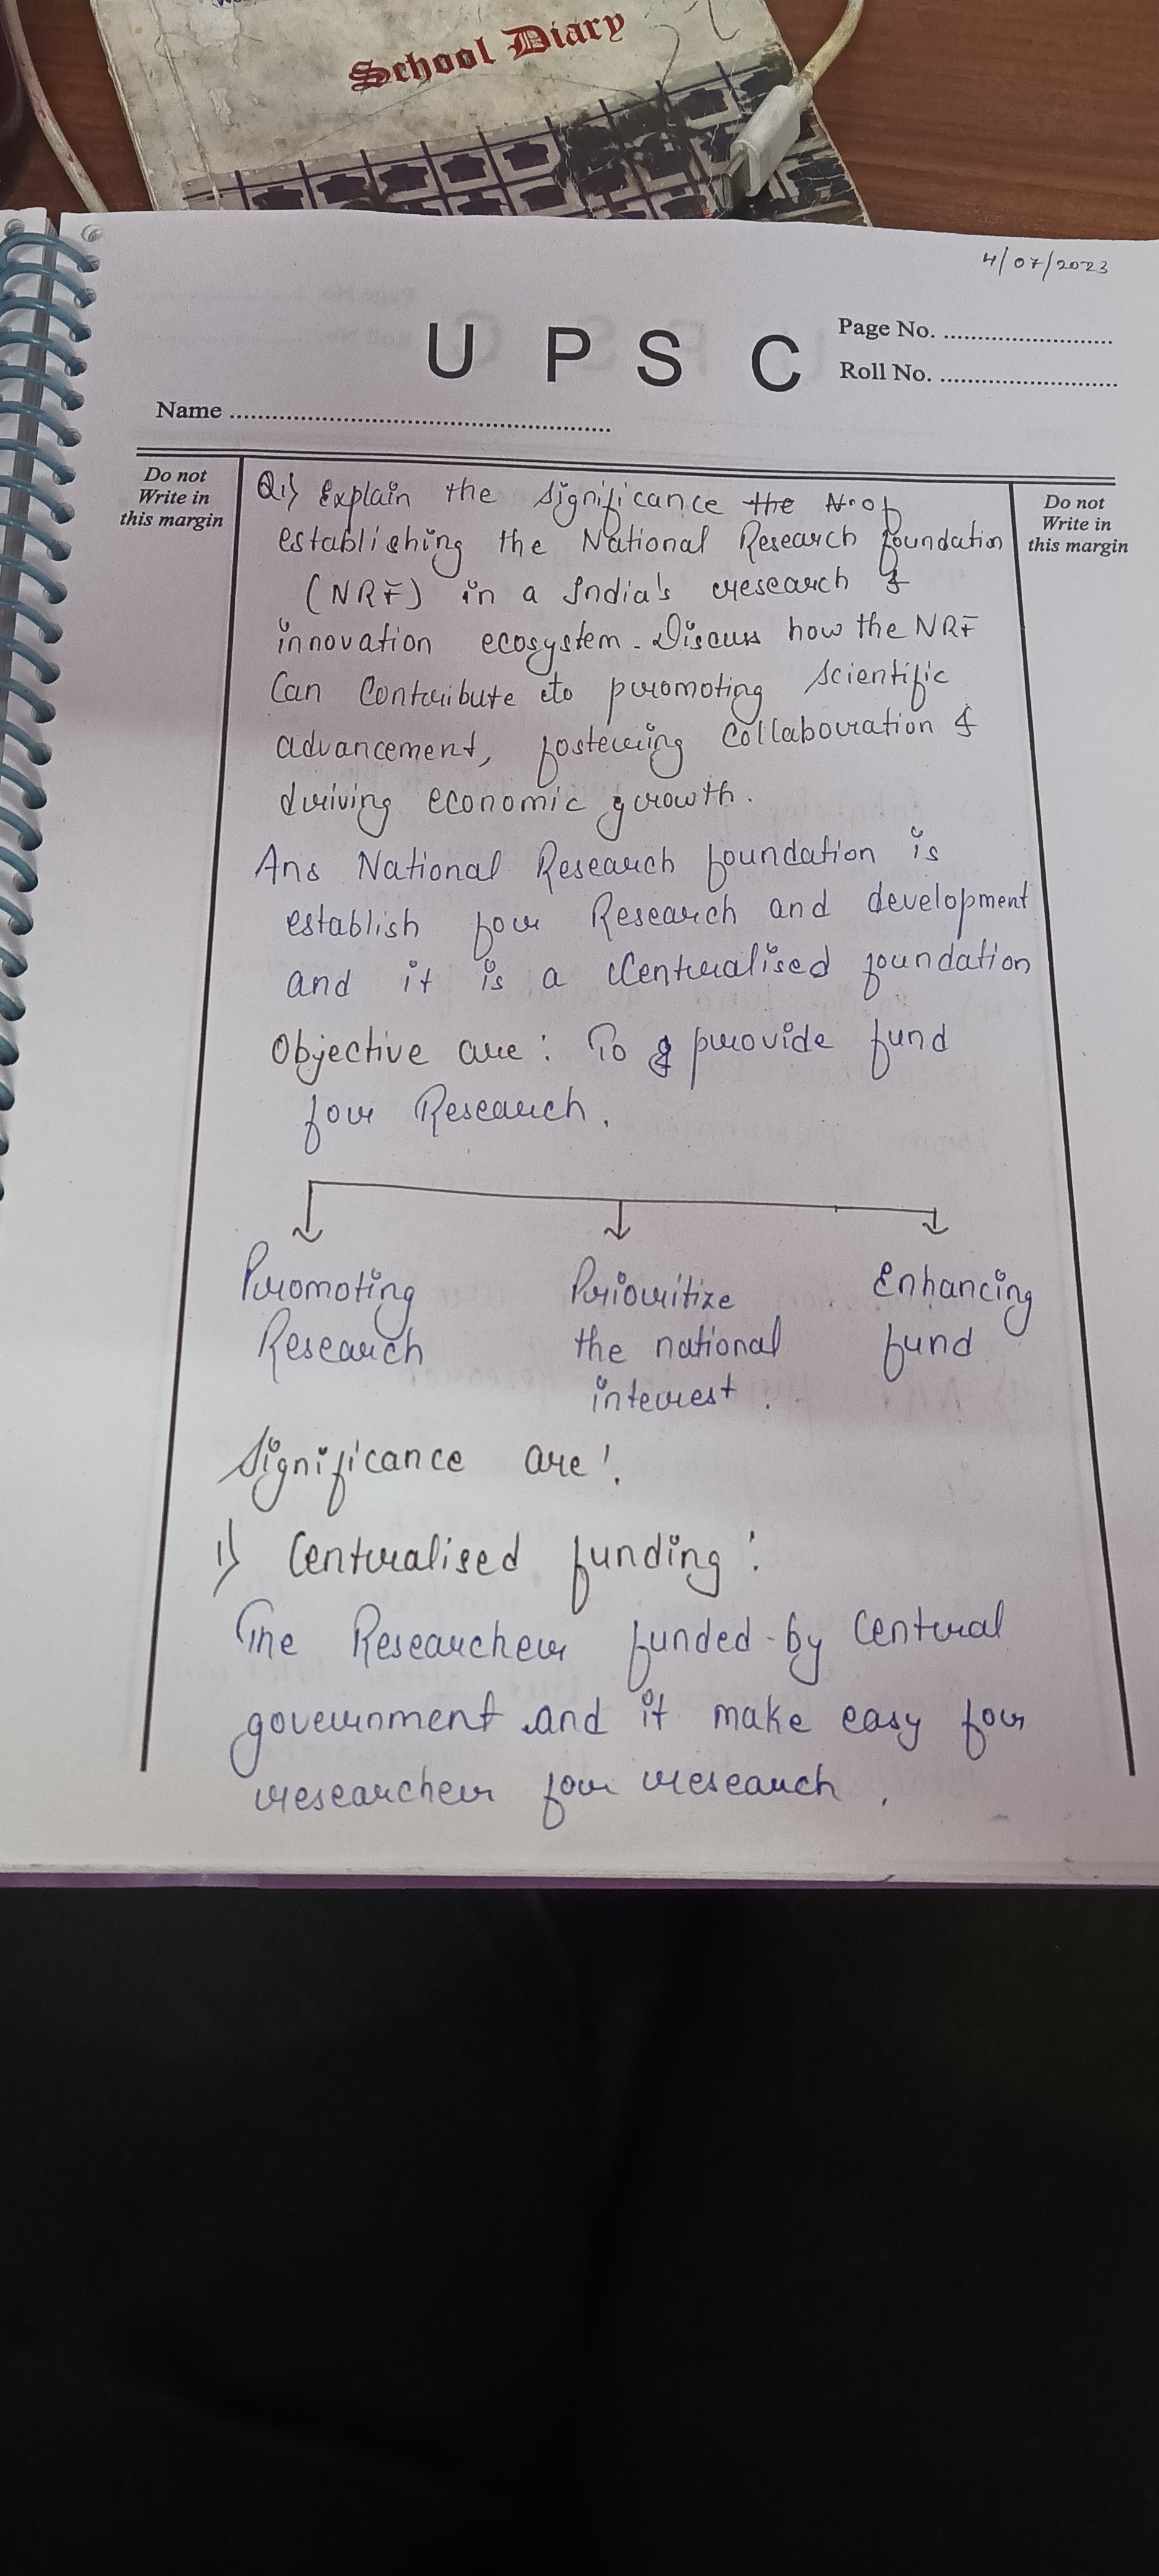 School Diary
4/07/2023
U P S C
Page No. ..........................
Roll No. ..........................
Name ..........................................................
Do not
Write in
this margin
Do not
Write in
this margin
Q.1) Explain the significance the N of
establishing the National Research foundation
(NRF) in a India's research &
innovation ecosystem. Discuss how the NRF
Can Contribute to promoting scientific
advancement, fostering Collaboration &
driving economic growth.
Ans National Research foundation is
establish for Research and development
and it is a Centralised foundation
Objective are : To provide fund
for Research.
Promoting Research
Prioritize the national interest.
Enhancing fund
Significance are :
1) Centralised funding :
The Researcher funded by Central
government and it make easy for
researcher for research.